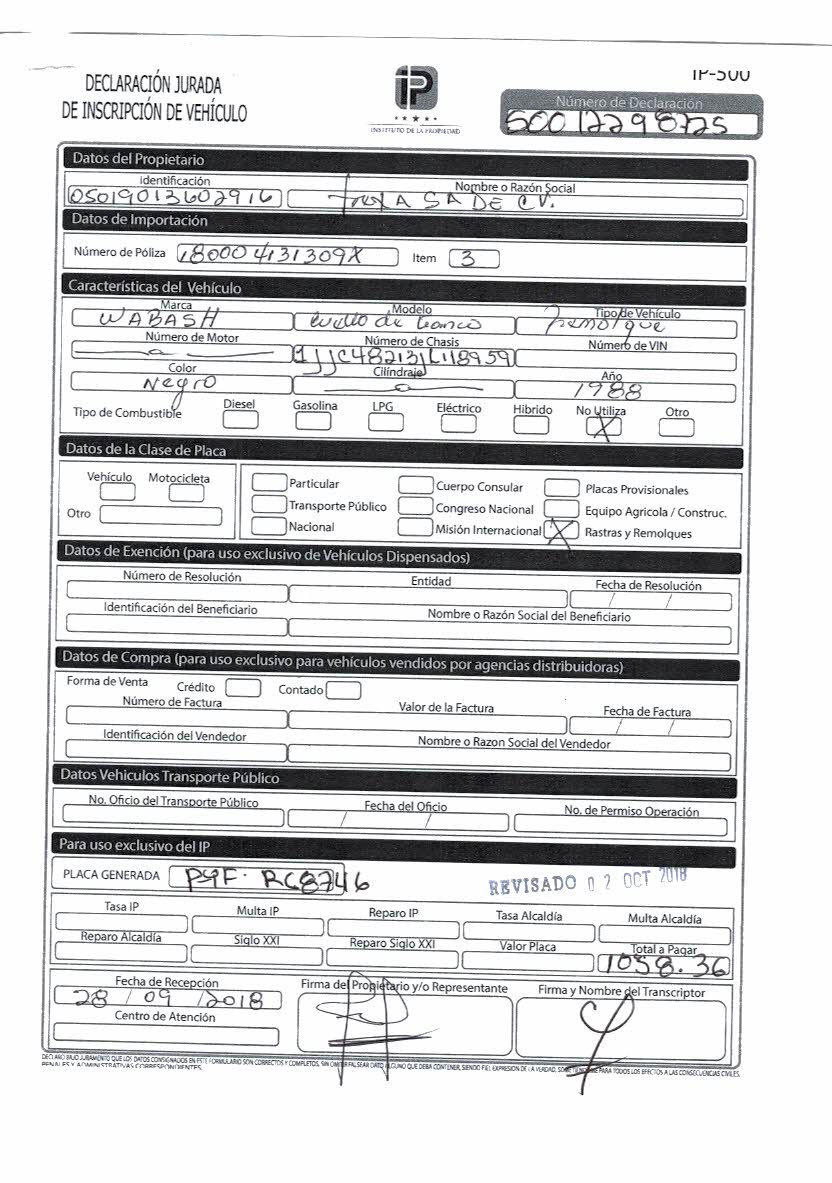 IP-500
DECLARACIÓN JURADA
DE INSCRIPCIÓN DE VEHÍCULO
iP
INSTITUTO DE LA PROPIEDAD
Número de Declaración
50017298725
Datos del Propietario
Identificación Nombre o Razón Social
05019013602916 SA DE CV.
Datos de Importación
Número de Póliza 180004131309X Item 3
Características del Vehículo
Marca Modelo Tipo de Vehículo
WABASH Remolque
Número de Motor Número de Chasis Número de VIN
1JJC48213JL118959
Color Cilíndraje Año
Negro 1988
Tipo de Combustible Diesel Gasolina LPG Eléctrico Hibrido No Utiliza Otro
X
Datos de la Clase de Placa
Vehículo Motocicleta
Otro
Particular Cuerpo Consular Placas Provisionales
Transporte Público Congreso Nacional Equipo Agricola / Construc.
Nacional Misión Internacional X Rastras y Remolques
Datos de Exención (para uso exclusivo de Vehículos Dispensados)
Número de Resolución Entidad Fecha de Resolución
/ /
Identificación del Beneficiario Nombre o Razón Social del Beneficiario
Datos de Compra (para uso exclusivo para vehículos vendidos por agencias distribuidoras)
Forma de Venta Crédito Contado
Número de Factura Valor de la Factura Fecha de Factura
/ /
Identificación del Vendedor Nombre o Razon Social del Vendedor
Datos Vehiculos Transporte Público
No. Oficio del Transporte Público Fecha del Oficio No. de Permiso Operación
/ /
Para uso exclusivo del IP
PLACA GENERADA RC8746
REVISADO 02 OCT 2018
Tasa IP Multa IP Reparo IP Tasa Alcaldía Multa Alcaldía
Reparo Alcaldía Siglo XXI Reparo Siglo XXI Valor Placa Total a Pagar
1058.36
Fecha de Recepción Firma del Propietario y/o Representante Firma y Nombre del Transcriptor
28 / 09 / 2018
Centro de Atención
DECLARO BAJO JURAMENTO QUE LOS DATOS CONSIGNADOS EN ESTE FORMULARIO SON CORRECTOS Y COMPLETOS, SIN OMITIR FALSEAR DATO ALGUNO QUE DEBA CONTENER, SIENDO FIEL EXPRESION DE LA VERDAD, PARA TODOS LOS EFECTOS A LAS CONSECUENCIAS CIVILES,
PENALES Y ADMINISTRATIVAS CORRESPONDIENTES